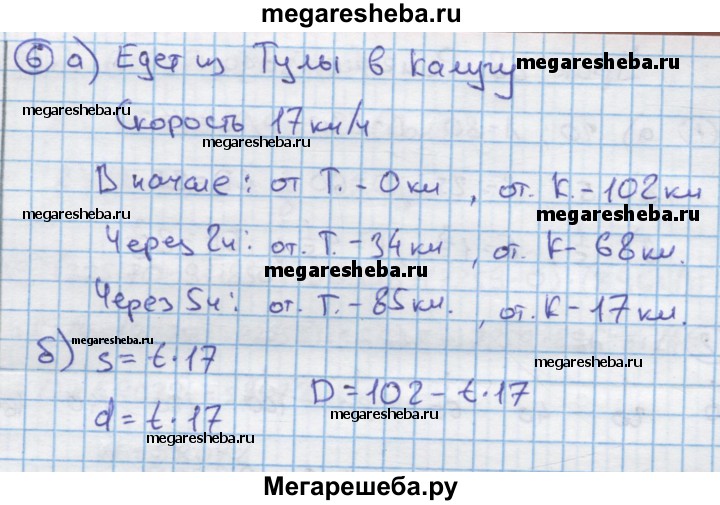 megaresheba.ru
6 а) Едет из Тулы в Калугу megaresheba.ru
megaresheba.ru
Скорость 17 км/ч
megaresheba.ru
В начале: от Т. - 0 км, от. К. - 102 км
megaresheba.ru megaresheba.ru
Через 2ч: от. Т. - 34 км, от. К - 68 км.
megaresheba.ru
Через 5ч: от. Т. - 85 км., от. К - 17 км.
megaresheba.ru
б) s = t · 17
megaresheba.ru
D = 102 - t · 17
megaresheba.ru
d = t · 17
megaresheba.ru
Мегарешеба.ру